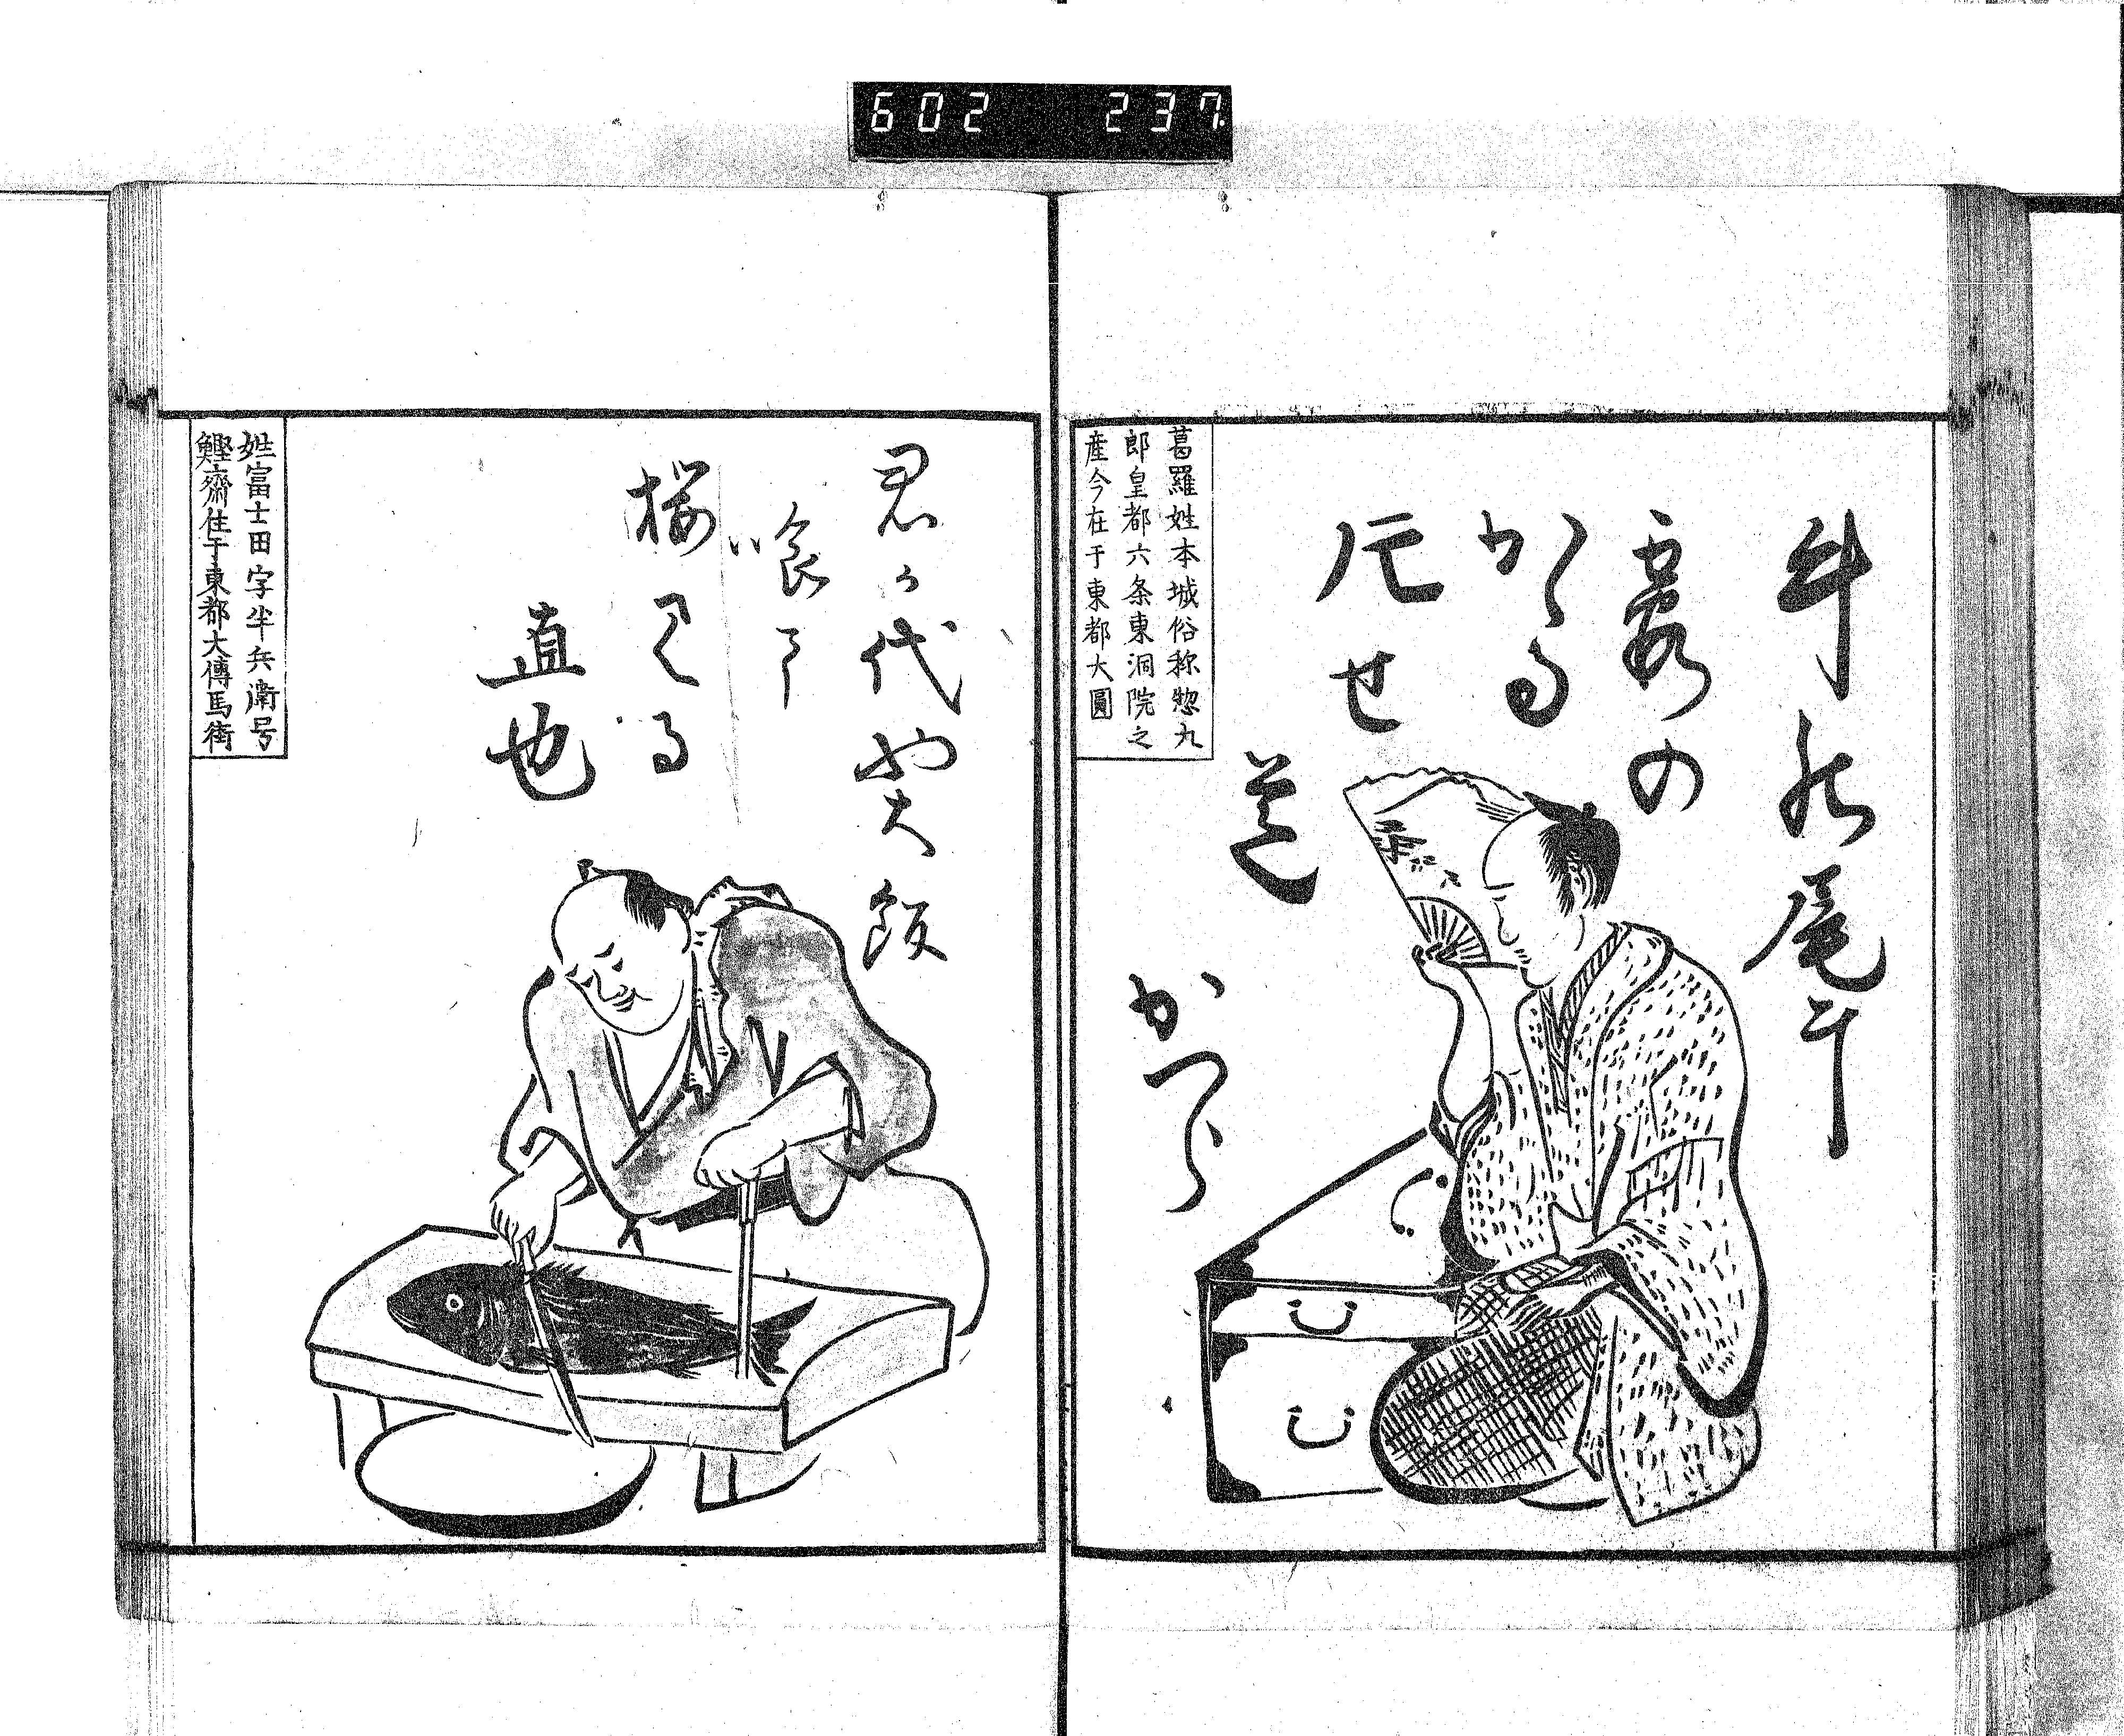 602 237.
霞の
かゝる
元せ
道
かつら
葛羅姓本城俗称惣九
郎皇都六条東洞院之
産今在于東都大圓
君か代や犬
飯
喰て
桜見る
直也
姓富士田字半兵衛号
鰹齋住于東都大傳馬街